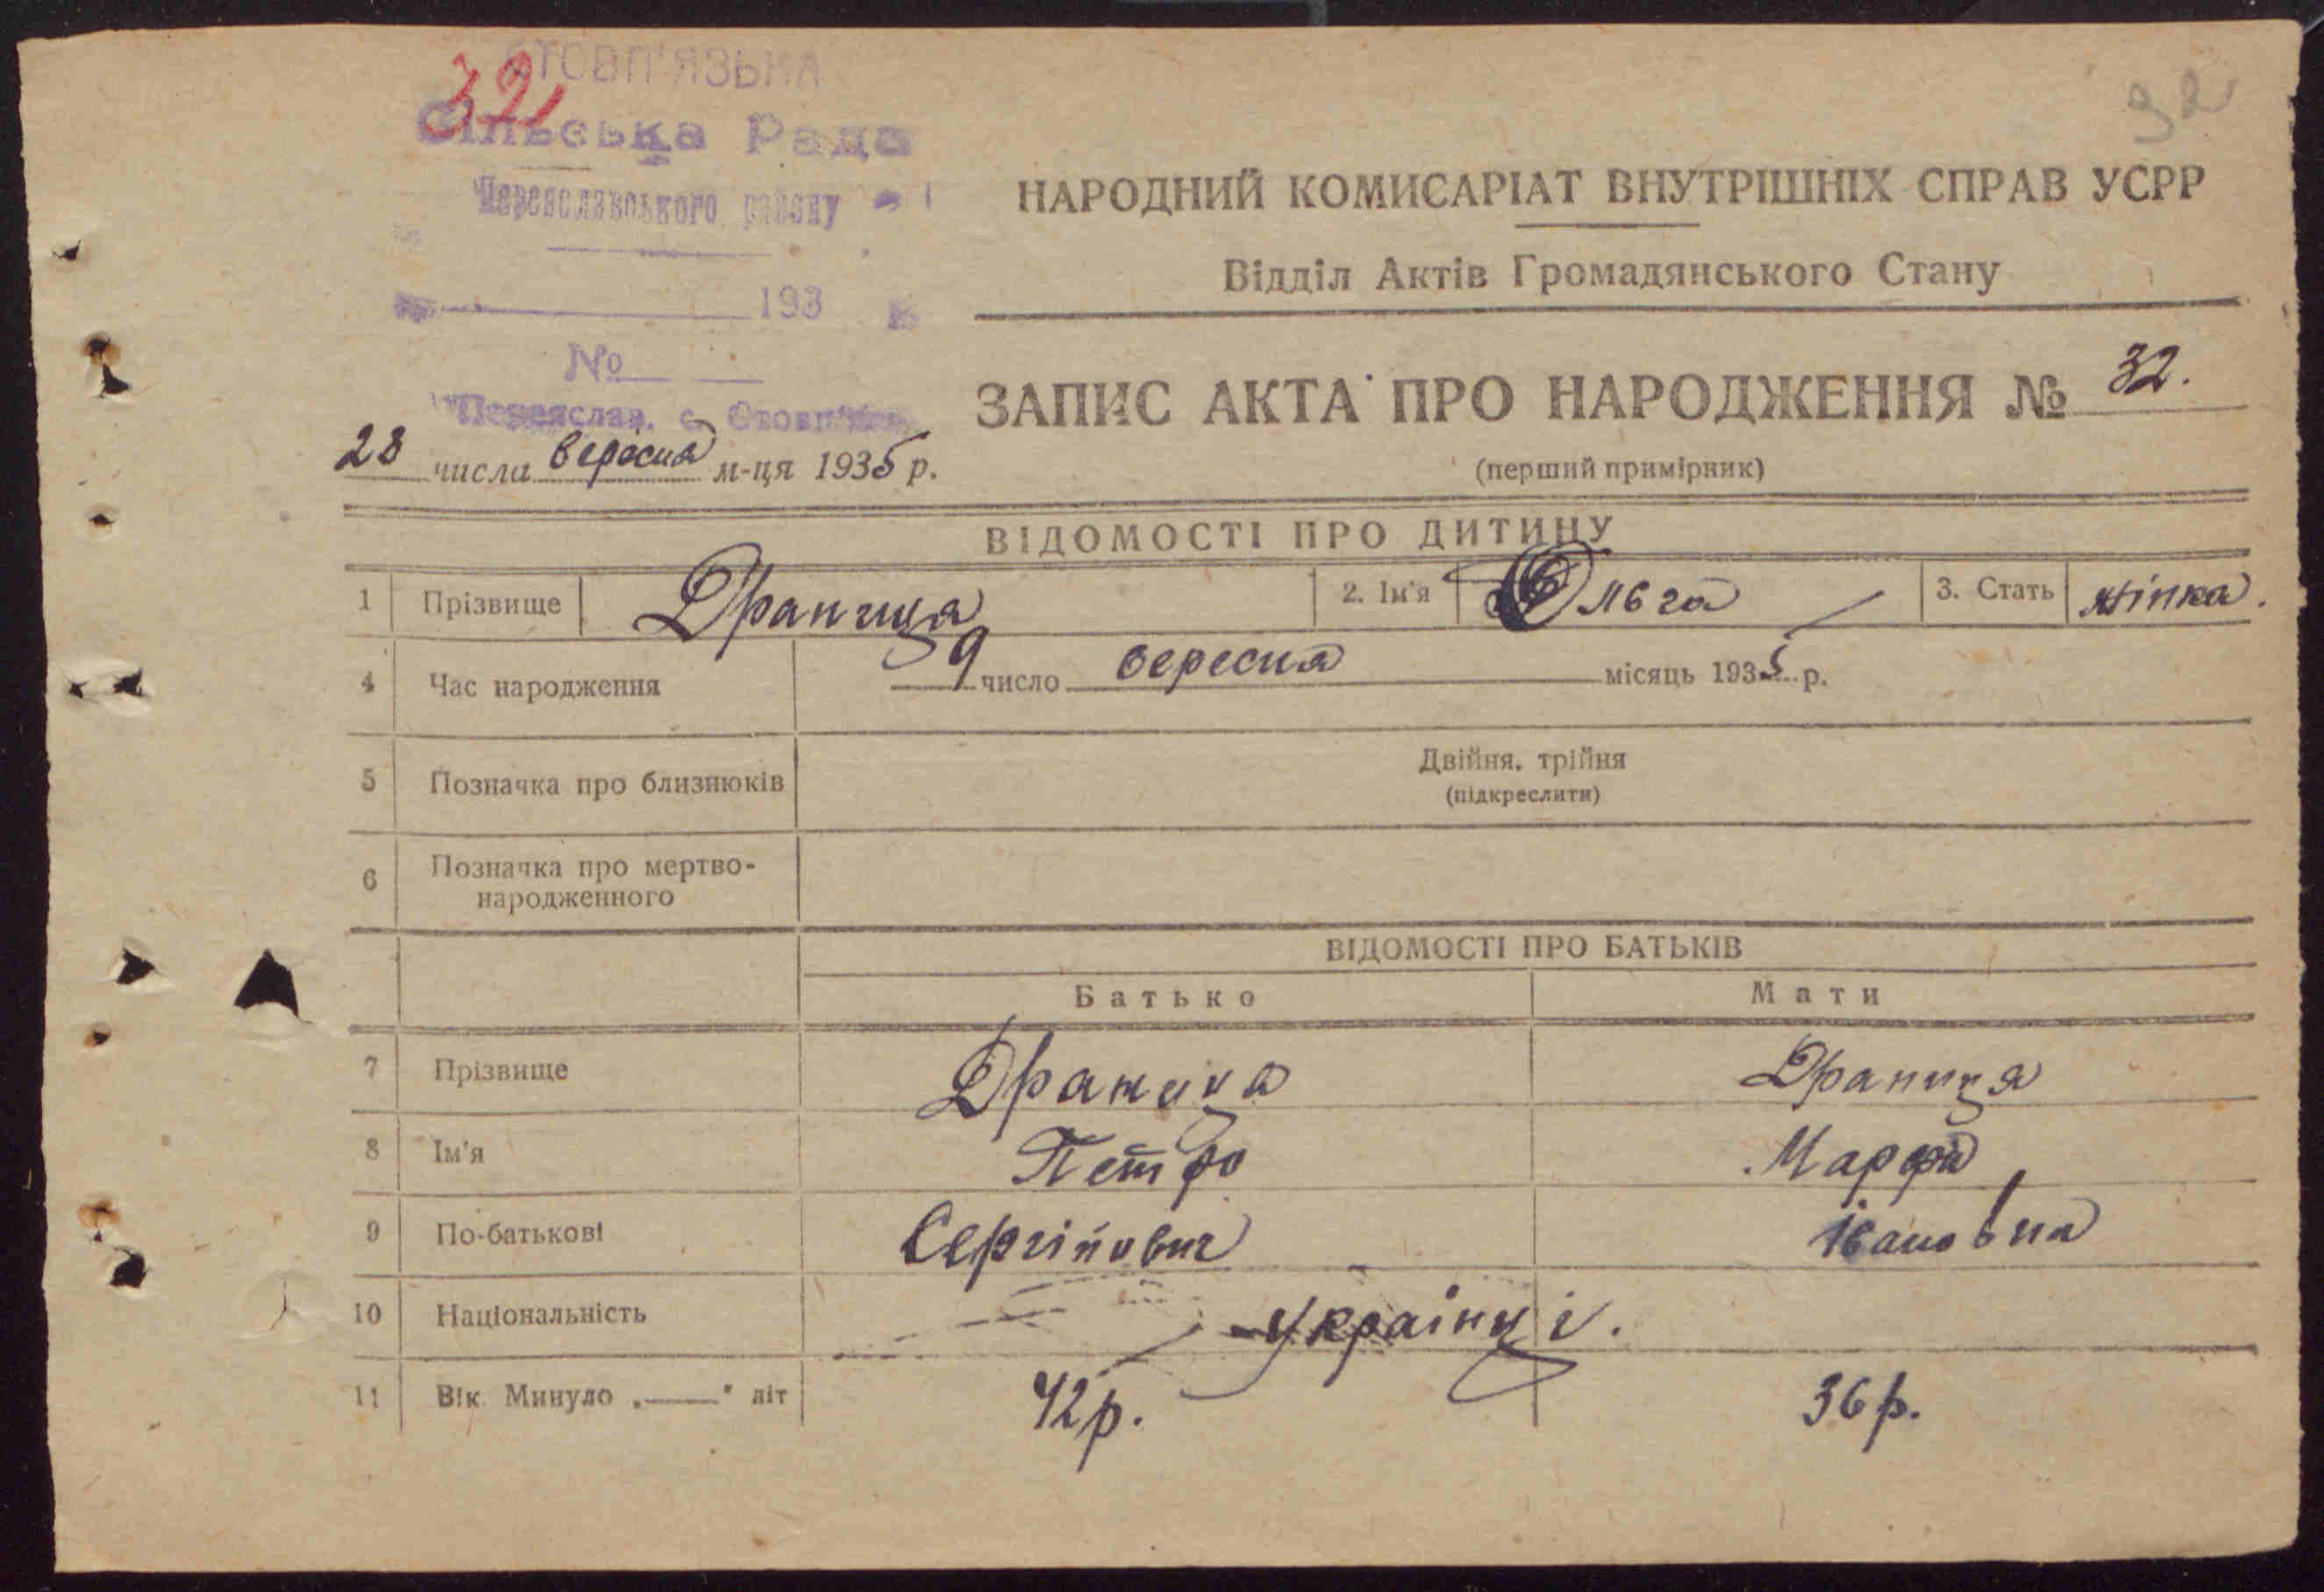 СТОВП'ЯЗЬКА
32
Сільська Рада
Переяславського району
193
№
Переяслав. с. Стовп'яги
32
НАРОДНИЙ КОМИСАРІАТ ВНУТРІШНІХ СПРАВ УСРР
Відділ Актів Громадянського Стану
ЗАПИС АКТА ПРО НАРОДЖЕННЯ № 32.
(перший примірник)
28 числа вересня м-ця 1935 р.
ВІДОМОСТІ ПРО ДИТИНУ
1 Прізвище Драпиця 2. Ім'я Ольга 3. Стать жінка.
4 Час народження 9 число вересня місяць 1935 р.
5 Позначка про близнюків Двійня, трійня
(підкреслити)
6 Позначка про мертво-
народженного
ВІДОМОСТІ ПРО БАТЬКІВ
Батько Мати
7 Прізвище Драпица Драпиця
8 Ім'я Петро Марфа
9 По-батькові Сергійович Івановна
10 Національність українці.
11 Вік Минуло „——" літ 42 р. 36 р.